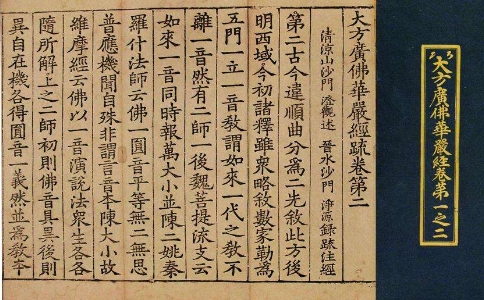 大方廣佛華嚴經卷第一之二
大方廣佛華嚴經疏卷第二
清涼山沙門 澄觀述 晉水沙門 淨源錄疏注經
第二古今違順曲分為二先敘此方後
明西域今初諸釋雖衆略敘數家勒為
五門一立一音教謂如來一代之教不
離一音然有二師一後魏菩提流支云
如來一音同時報萬大小並陳二姚秦
羅什法師云佛一圓音平等無二無思
普應機聞自殊非謂言音本陳大小故
維摩經云佛以一音演說法衆生各各
隨所解上之二師初則佛音具異後則
異自在機各得圓音一義然並為教本